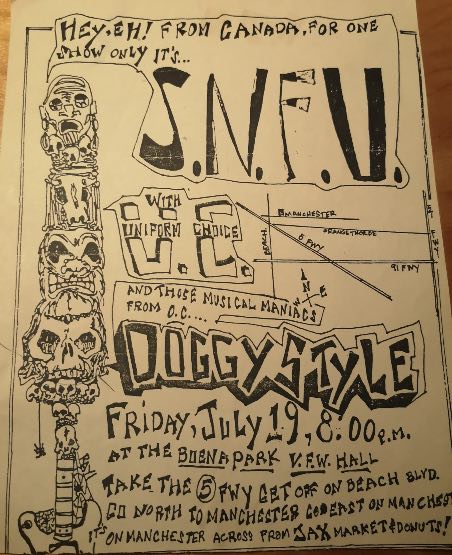 HEY, EH! FROM CANADA, FOR ONE
SHOW ONLY IT'S...
S.N.F.U.
WITH
UNIFORM CHOICE
U.C.
MANCHESTER
ORANGETHORPE
BEACH
5 FWY
91 FWY
N
E
W
AND THOSE MUSICAL MANIACS
FROM O.C....
DOGGY STYLE
FRIDAY, JULY 19, 8:00 P.M.
AT THE BUENA PARK V.F.W. HALL
TAKE THE 5 FWY GET OFF ON BEACH BLVD.
GO NORTH TO MANCHESTER GO EAST ON MANCHEST
IT'S ON MANCHESTER ACROSS FROM JAX MARKET & DONUTS!